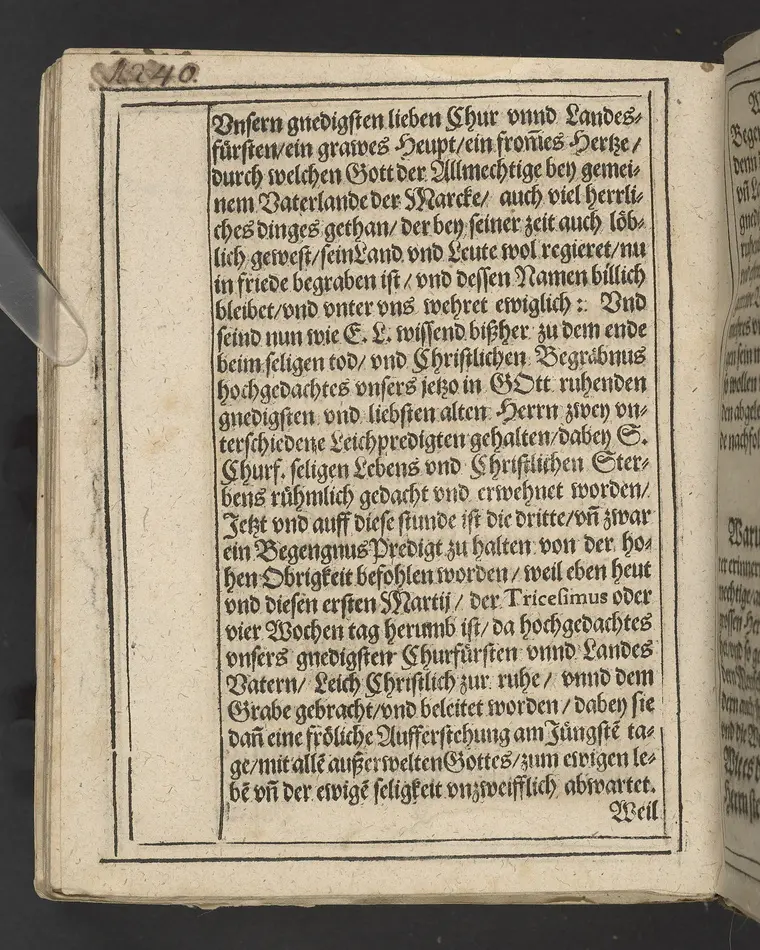 1240.
Vnsern gnedigsten lieben Chur vnnd Landes-
fürsten/ein grawes Heupt/ein from̃es Hertze/
durch welchen Gott der Allmechtige bey gemei-
nem Vaterlande der Marcke/ auch viel herrli-
ches dinges gethan/ der bey seiner zeit auch löb-
lich gewest/sein Land vnd Leute wol regieret/nu
in friede begraben ist/ vnd dessen Namen billich
bleibet/vnd vnter vns wehret ewiglich:. Vnd
seind nun wie E. L. wissend bißher zu dem ende
beim seligen tod/ vnd Christlichen Begräbnus
hochgedachtes vnsers jetzo in GOtt ruhenden
gnedigsten vnd liebsten alten Herrn zwey vn-
terschiedene Leichpredigten gehalten/dabey S.
Churf. seligen Lebens vnd Christlichen Ster-
bens rühmlich gedacht vnd erwehnet worden/
Jetzt vnd auff diese stunde ist die dritte/vñ zwar
ein Begengnus Predigt zu halten von der ho-
hen Obrigkeit befohlen worden/ weil eben heut
vnd diesen ersten Martij/ der Tricesimus oder
vier Wochen tag herumb ist/ da hochgedachtes
vnsers gnedigsten Churfürsten vnnd Landes
Vatern/ Leich Christlich zur ruhe/ vnnd dem
Grabe gebracht/vnd beleitet worden/ dabey sie
dañ eine fröliche Aufferstehung am Jüngstẽ ta-
ge/mit allẽ außerwelten Gottes/zum ewigen le-
bẽ vñ der ewigẽ seligkeit vnzweifflich abwartet.
Weil